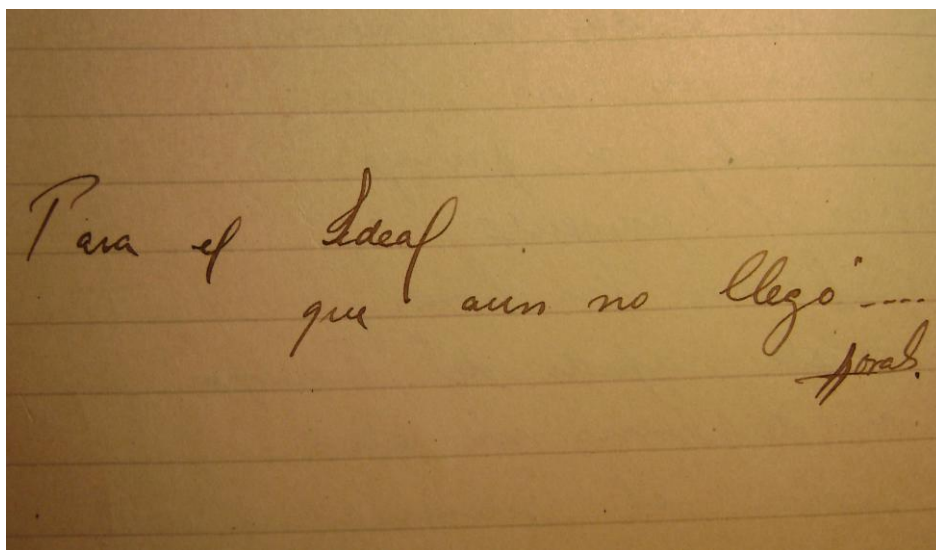 Para el Ideal
que aun no llegó ....